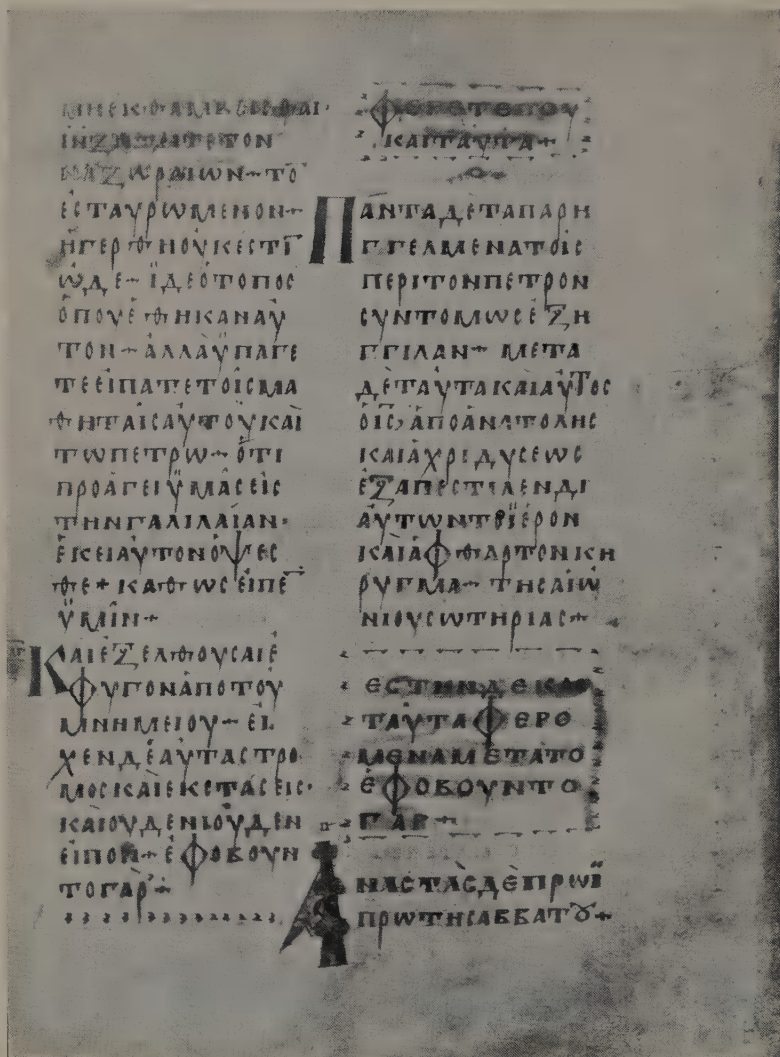 ΜΗΕΚΘΑΜΒΕΙϹΘΑΙ·
ΤΕΤΟΝ
ΝΑΖΩΡΑΙΩΝ–ΤΟ
ΕϹΤΑΥΡΩΜΕΝΟΝ–
ΗΓΕΡΘΗΝΟΥΚΕϹΤΙ̅
ΩΔΕ–ΪΔΕΟΤΟΠΟϹ
ΟΠΟΥΕΘΗΚΑΝΑΥ
ΤΟΝ–ΑΛΛΑΫΠΑΓΕ
ΤΕΕΙΠΑΤΕΤΟΙϹΜΑ
ΘΗΤΑΙϹΑΥΤΟΥΚΑΙ
ΤΩΠΕΤΡΩ–ΟΤΙ
ΠΡΟΑΓΕΙΫΜΑϹΕΙϹ
ΤΗΝΓΑΛΙΛΑΙΑΝ·
ΕΚΕΙΑΥΤΟΝΟΨΕϹ
ΘΕ+ΚΑΘΩϹΕΙΠΕ̅
ΫΜΙΝ+
ΚΑΙΕΞΕΛΘΟΥϹΑΙΕ
ΦΥΓΟΝΑΠΟΤΟΥ
ΜΝΗΜΕΙΟΥ–ΕΙ
ΧΕΝΔΕΑΥΤΑϹΤΡΟ
ΜΟϹΚΑΙΕΚϹΤΑϹΕΙϹ·
ΚΑΙΟΥΔΕΝΙΟΥΔΕΝ
ΕΙΠΟΝ–ΕΦΟΒΟΥΝ
ΤΟΓΑΡ÷
ΦΕΡΕΤΕΠΟΥ
ΚΑΙΤΑΥΤΑ+
ΠΑΝΤΑΔΕΤΑΠΑΡΗ
ΓΓΕΛΜΕΝΑΤΟΙϹ
ΠΕΡΙΤΟΝΠΕΤΡΟΝ
ϹΥΝΤΟΜΩϹΕΞΗ
ΓΓΙΛΑΝ–ΜΕΤΑ
ΔΕΤΑΥΤΑΚΑΙΑΥΤΟϹ
ΟΙϹ,ΑΠΟΑΝΑΤΟΛΗϹ
ΚΑΙΑΧΡΙΔΥϹΕΩϹ
ΕΞΑΠΕϹΤΙΛΕΝΔΙ
ΑΥΤΩΝΤΟΪΕΡΟΝ
ΚΑΙΑΦΘΑΡΤΟΝΚΗ
ΡΥΓΜΑ–ΤΗϹΑΙΩ
ΝΙΟΥϹΩΤΗΡΙΑϹ+
ΕϹΤΗΝΔΕΚΑΙ
ΤΑΥΤΑΦΕΡΟ
ΜΕΝΑΜΕΤΑΤΟ
ΕΦΟΒΟΥΝΤΟ
ΓΑΡ+
ΑΝΑϹΤΑϹΔΕΠΡΩΪ
ΠΡΩΤΗϹΑΒΒΑΤȢ+